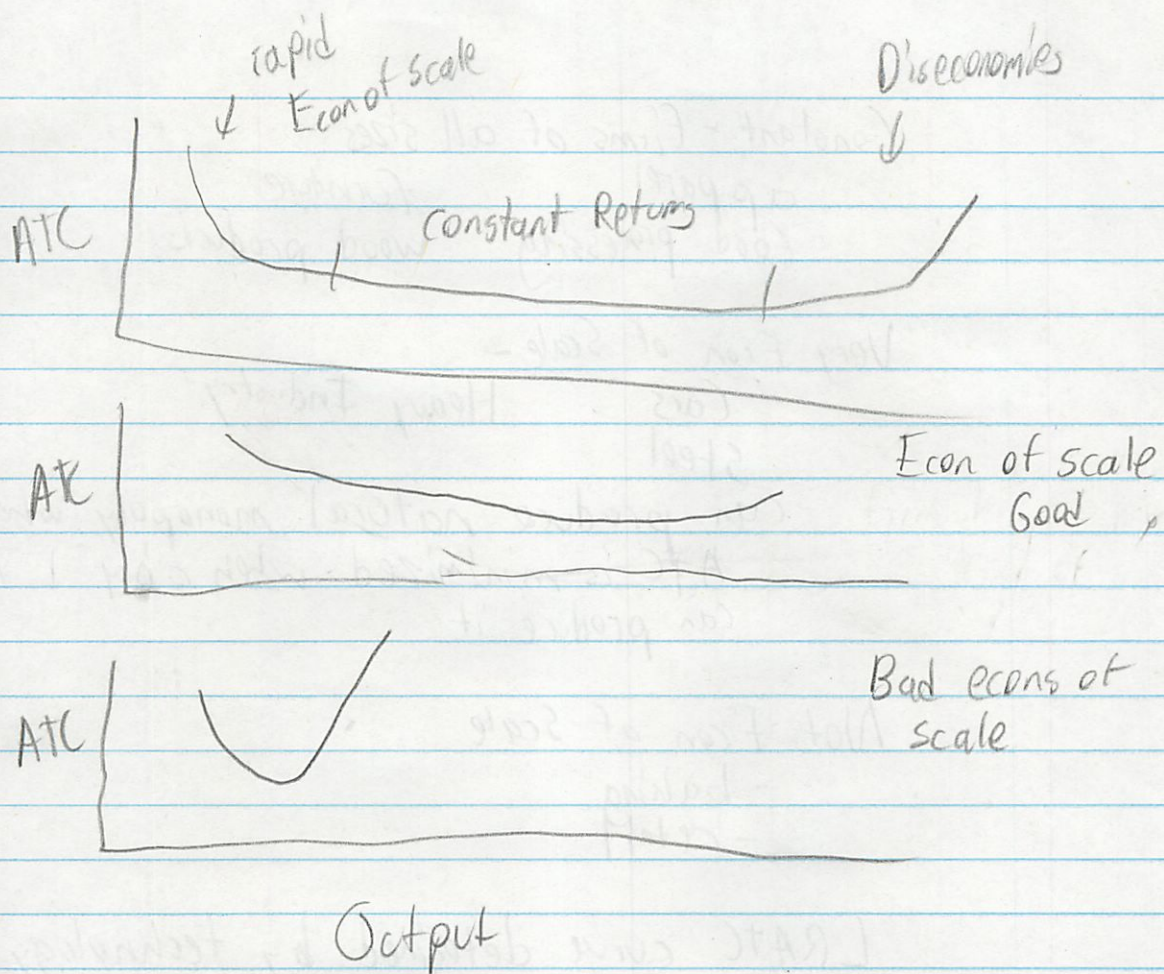 rapid
Econ of scale
Diseconomies
ATC
Constant Returns
ATC
Econ of scale
Good
ATC
Bad econs of
scale
Output